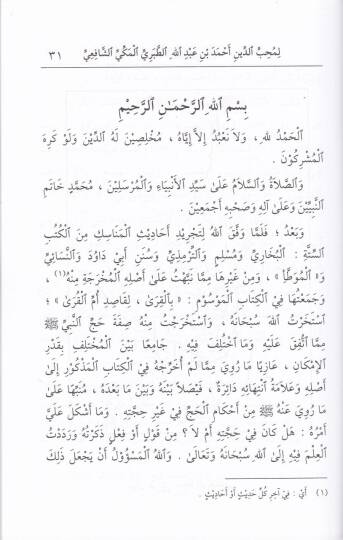 لِمُحِبِّ الدِّينِ أَحْمَدَ بْنِ عَبْدِ اللهِ الطَّبَرِيِّ الْمَكِّيِّ الشَّافِعِيِّ ٣١
بِسْمِ اللهِ الرَّحْمَـٰنِ الرَّحِيْمِ
الْحَمْدُ لِلهِ ، وَلاَ نَعْبُدُ إِلاَّ إِيَّاهُ ، مُخْلِصِيْنَ لَهُ الدِّيْنَ وَلَوْ كَرِهَ
الْمُشْرِكُوْنَ .
وَالصَّلاَةُ وَالسَّلاَمُ عَلَى سَيِّدِ الأَنْبِيَاءِ وَالْمُرْسَلِيْنَ ، مُحَمَّدٍ خَاتَمِ
النَّبِيِّيْنَ وَعَلَى آلِهِ وَصَحْبِهِ أَجْمَعِيْنَ .
وَبَعْدُ ؛ فَلَمَّا وَفَّقَ اللهُ لِتَجْرِيْدِ أَحَادِيْثِ الْمَنَاسِكِ مِنَ الْكُتُبِ
السِّتَّةِ : الْبُخَارِيِّ وَمُسْلِمٍ وَالتِّرْمِذِيِّ وَسُنَنِ أَبِي دَاوُدَ وَالنَّسَائِيِّ
وَ« الْمُوَطَّأِ » ، وَمِنْ غَيْرِهَا مِمَّا نَبَّهْتُ عَلَى أَصْلِهِ الْمُخَرَّجَةِ مِنْهُ(١) ،
وَجَمَعْتُهَا فِي الْكِتَابِ الْمَوْسُوْمِ : « بِالْقِرَى ، لِقَاصِدِ أُمِّ الْقُرَى » ؛
اسْتَخَرْتُ اللهَ سُبْحَانَهُ ، وَاسْتَخْرَجْتُ مِنْهُ صِفَةَ حَجِّ النَّبِيِّ ﷺ
مِمَّا اتُّفِقَ عَلَيْهِ وَمَا اخْتُلِفَ فِيْهِ . جَامِعًا بَيْنَ الْمُخْتَلِفِ بِقَدْرِ
الإِمْكَانِ ، عَازِيًا مَا رُوِيَ مِمَّا لَمْ أُخَرِّجْهُ فِي الْكِتَابِ الْمَذْكُوْرِ إِلَى
أَصْلِهِ وَعَلاَمَةُ انْتِهَائِهِ دَائِرَةٌ ، فَيْصَلاً بَيْنَهُ وَبَيْنَ مَا بَعْدَهُ ، مُنَبِّهًا عَلَى
مَا رُوِيَ عَنْهُ ﷺ مِنْ أَحْكَامِ الْحَجِّ فِيْ غَيْرِ حِجَّتِهِ . وَمَا أَشْكَلَ عَلَيَّ
أَمْرُهُ : هَلْ كَانَ فِيْ حَجَّتِهِ أَمْ لاَ ؟ مِنْ قَوْلٍ أَوْ فِعْلٍ ذَكَرْتُهُ وَرَدَدْتُ
الْعِلْمَ فِيْهِ إِلَى اللهِ سُبْحَانَهُ وَتَعَالَى . وَاللهُ الْمَسْؤُوْلُ أَنْ يَجْعَلَ ذَلِكَ
(١) أَيْ : فِيْ آخِرِ كُلِّ حَدِيْثٍ أَوْ أَحَادِيْثٍ .